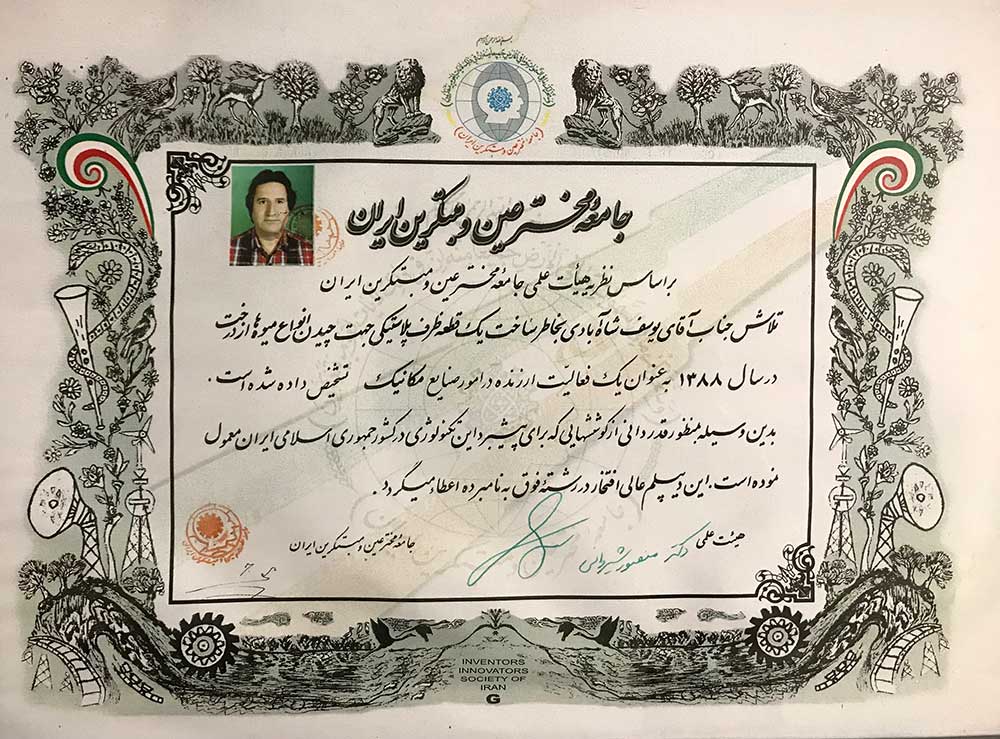 بسم الله الرحمن الرحیم
(جامعه مخترعین و مبتکرین ایران)
جامعه مخترعین و مبتکرین ایران
بر اساس نظریه هیأت علمی جامعه مخترعین و مبتکرین ایران
تلاش جناب آقای یوسف شاه آبادی بخاطر ساخت یک قطعه ظرف پلاستیکی جهت چیدن انواع میوه ها از درخت
در سال ۱۳۸۸ به عنوان یک فعالیت ارزنده در امور صنایع مکانیک تشخیص داده شده است.
بدین وسیله بمنظور قدردانی از کوششهایی که برای پیشبرد این تکنولوژی در کشور جمهوری اسلامی ایران معمول
نموده است. این دیپلم عالی افتخار در رشته فوق به نامبرده اعطاء میگردد.
هیئت علمی
دکتر منصور
جامعه مخترعین و مبتکرین ایران
INVENTORS
INNOVATORS
SOCIETY OF
IRAN
G